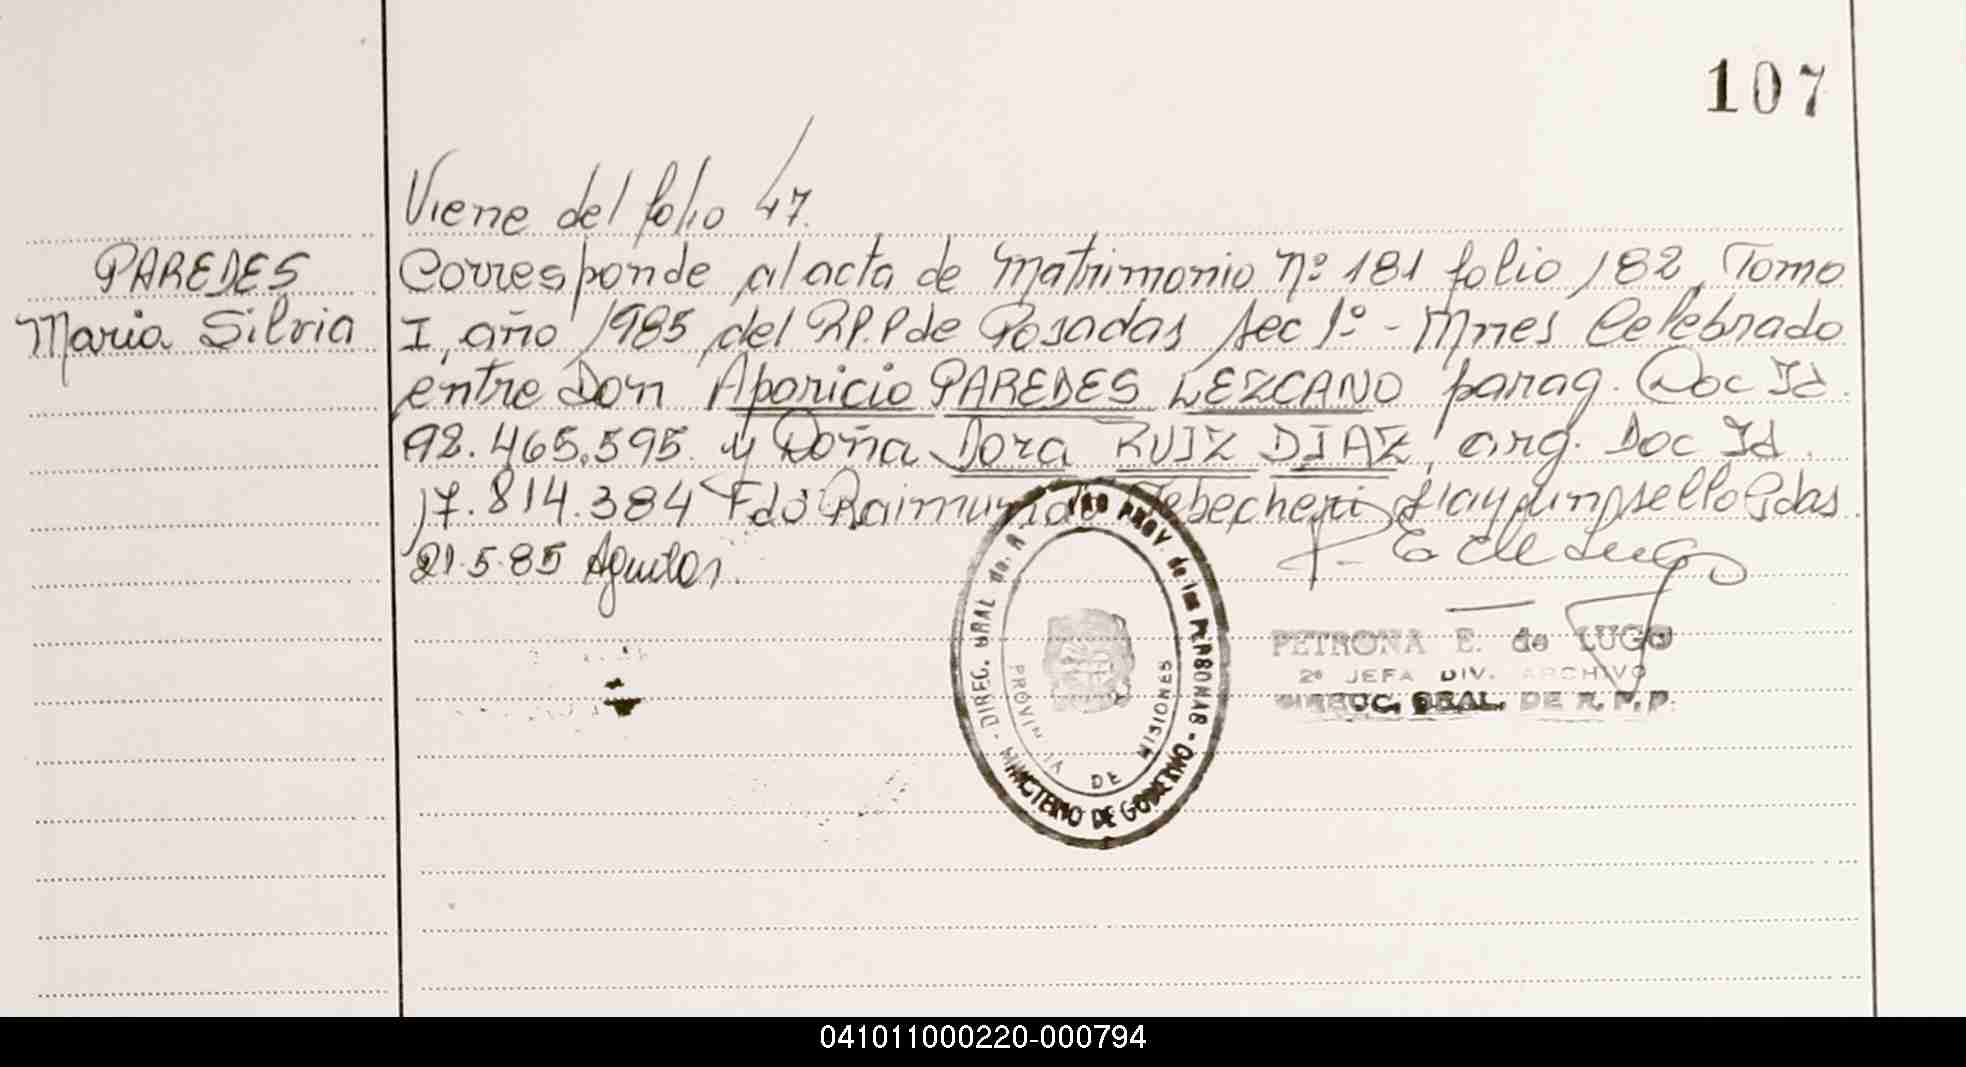 107
Viene del folio 47.
PAREDES
Maria Silvia
Corresponde al acta de Matrimonio Nº 181 folio 182, Tomo
I, año 1985 del R.P.P de Posadas Sec 1º - Mnes Celebrado
entre Don Aparicio PAREDES LEZCANO parag. Doc Id.
92.465.595. y Doña Dora RUIZ DIAZ, arg. Doc Id.
17.814.384 Fdo Raimundo hay un sello Pdas
21.5.85 Aguilar.
P. E de Lugo
PETRONA E. de LUGO
2º JEFA DIV. ARCHIVO
DIREUC. GRAL. DE R. P. P.
DIREC. GRAL de. R TRO PROV. de las PERSONAS - MINISTERIO DE GOBIERNO -
PROVINCIA DE MISIONES
041011000220-000794